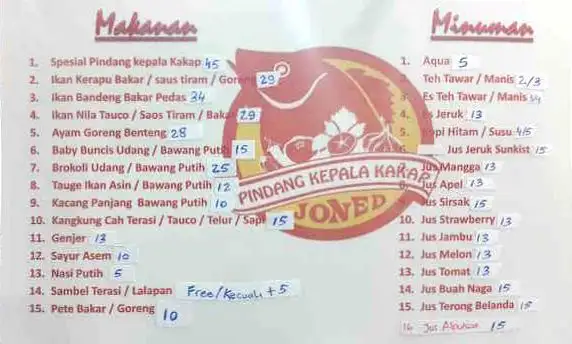 Makanan
1. Spesial Pindang kepala Kakap 45
2. Ikan Kerapu Bakar / saus tiram / Goreng 29
3. Ikan Bandeng Bakar Pedas 34
4. Ikan Nila Tauco / Saos Tiram / Bakar 29
5. Ayam Goreng Benteng 28
6. Baby Buncis Udang / Bawang Putih 15
7. Brokoli Udang / Bawang Putih 25
8. Tauge Ikan Asin / Bawang Putih 12
9. Kacang Panjang Bawang Putih 10
10. Kangkung Cah Terasi / Tauco / Telur / Sapi 15
11. Genjer 13
12. Sayur Asem 10
13. Nasi Putih 5
14. Sambel Terasi / Lalapan Free/Kecuali + 5
15. Pete Bakar / Goreng 10
PINDANG KEPALA KAKAP
JONED
Minuman
1. Aqua 5
2. Teh Tawar / Manis 2/3
3. Es Teh Tawar / Manis 3/4
4. Es Jeruk 13
5. Kopi Hitam / Susu 4/5
Jus Jeruk Sunkist 15
Jus Mangga 13
Jus Apel 13
Jus Sirsak 15
10. Jus Strawberry 13
11. Jus Jambu 13
12. Jus Melon 13
13. Jus Tomat 13
14. Jus Buah Naga 15
15. Jus Terong Belanda 15
16 Jus Alpukat 15